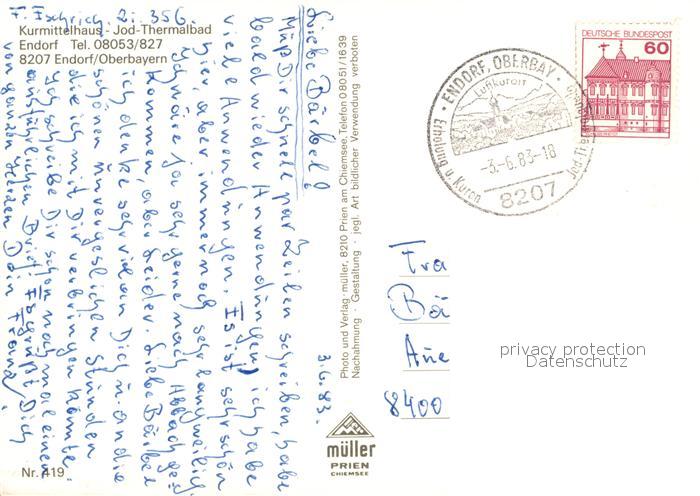 F. Eschrich, Zi. 356.
Kurmittelhaus - Jod-Thermalbad
Endorf Tel. 08053/827
8207 Endorf/Oberbayern
3.6.83.
Liebe Bärbel!
Muß Dir schnell paar Zeilen schreiben, habe
bald wieder Anwendungen, ich habe
viele Anwendungen. Es ist sehr schön
hier aber immer noch sehr langweilig.
wäre ja sehr gerne nach
kommen, aber leider. Liebe Bärbel
ich denke sehr viel an Dich u. an die
schönen unvergeslichen Stunden
die ich mit Dir verbringen könnte.
Ich schreibe Dir schon noch mal einen
ausführlichen Brief. Es grüßt Dich
von ganzen Herzen Dein Franz.
Nr. 419
Photo und Verlag · müller, 8210 Prien am Chiemsee, Telefon 08051/1639
Nachahmung · Gestaltung · jegl. Art bildlicher Verwendung verboten
müller
PRIEN
CHIEMSEE
ENDORF, OBERBAY.
Luftkurort
-3.-6.83-18
Erholung u. Kuren
8207
DEUTSCHE BUNDESPOST
60
Fra
Bä
Aue
8400
privacy protection
Datenschutz